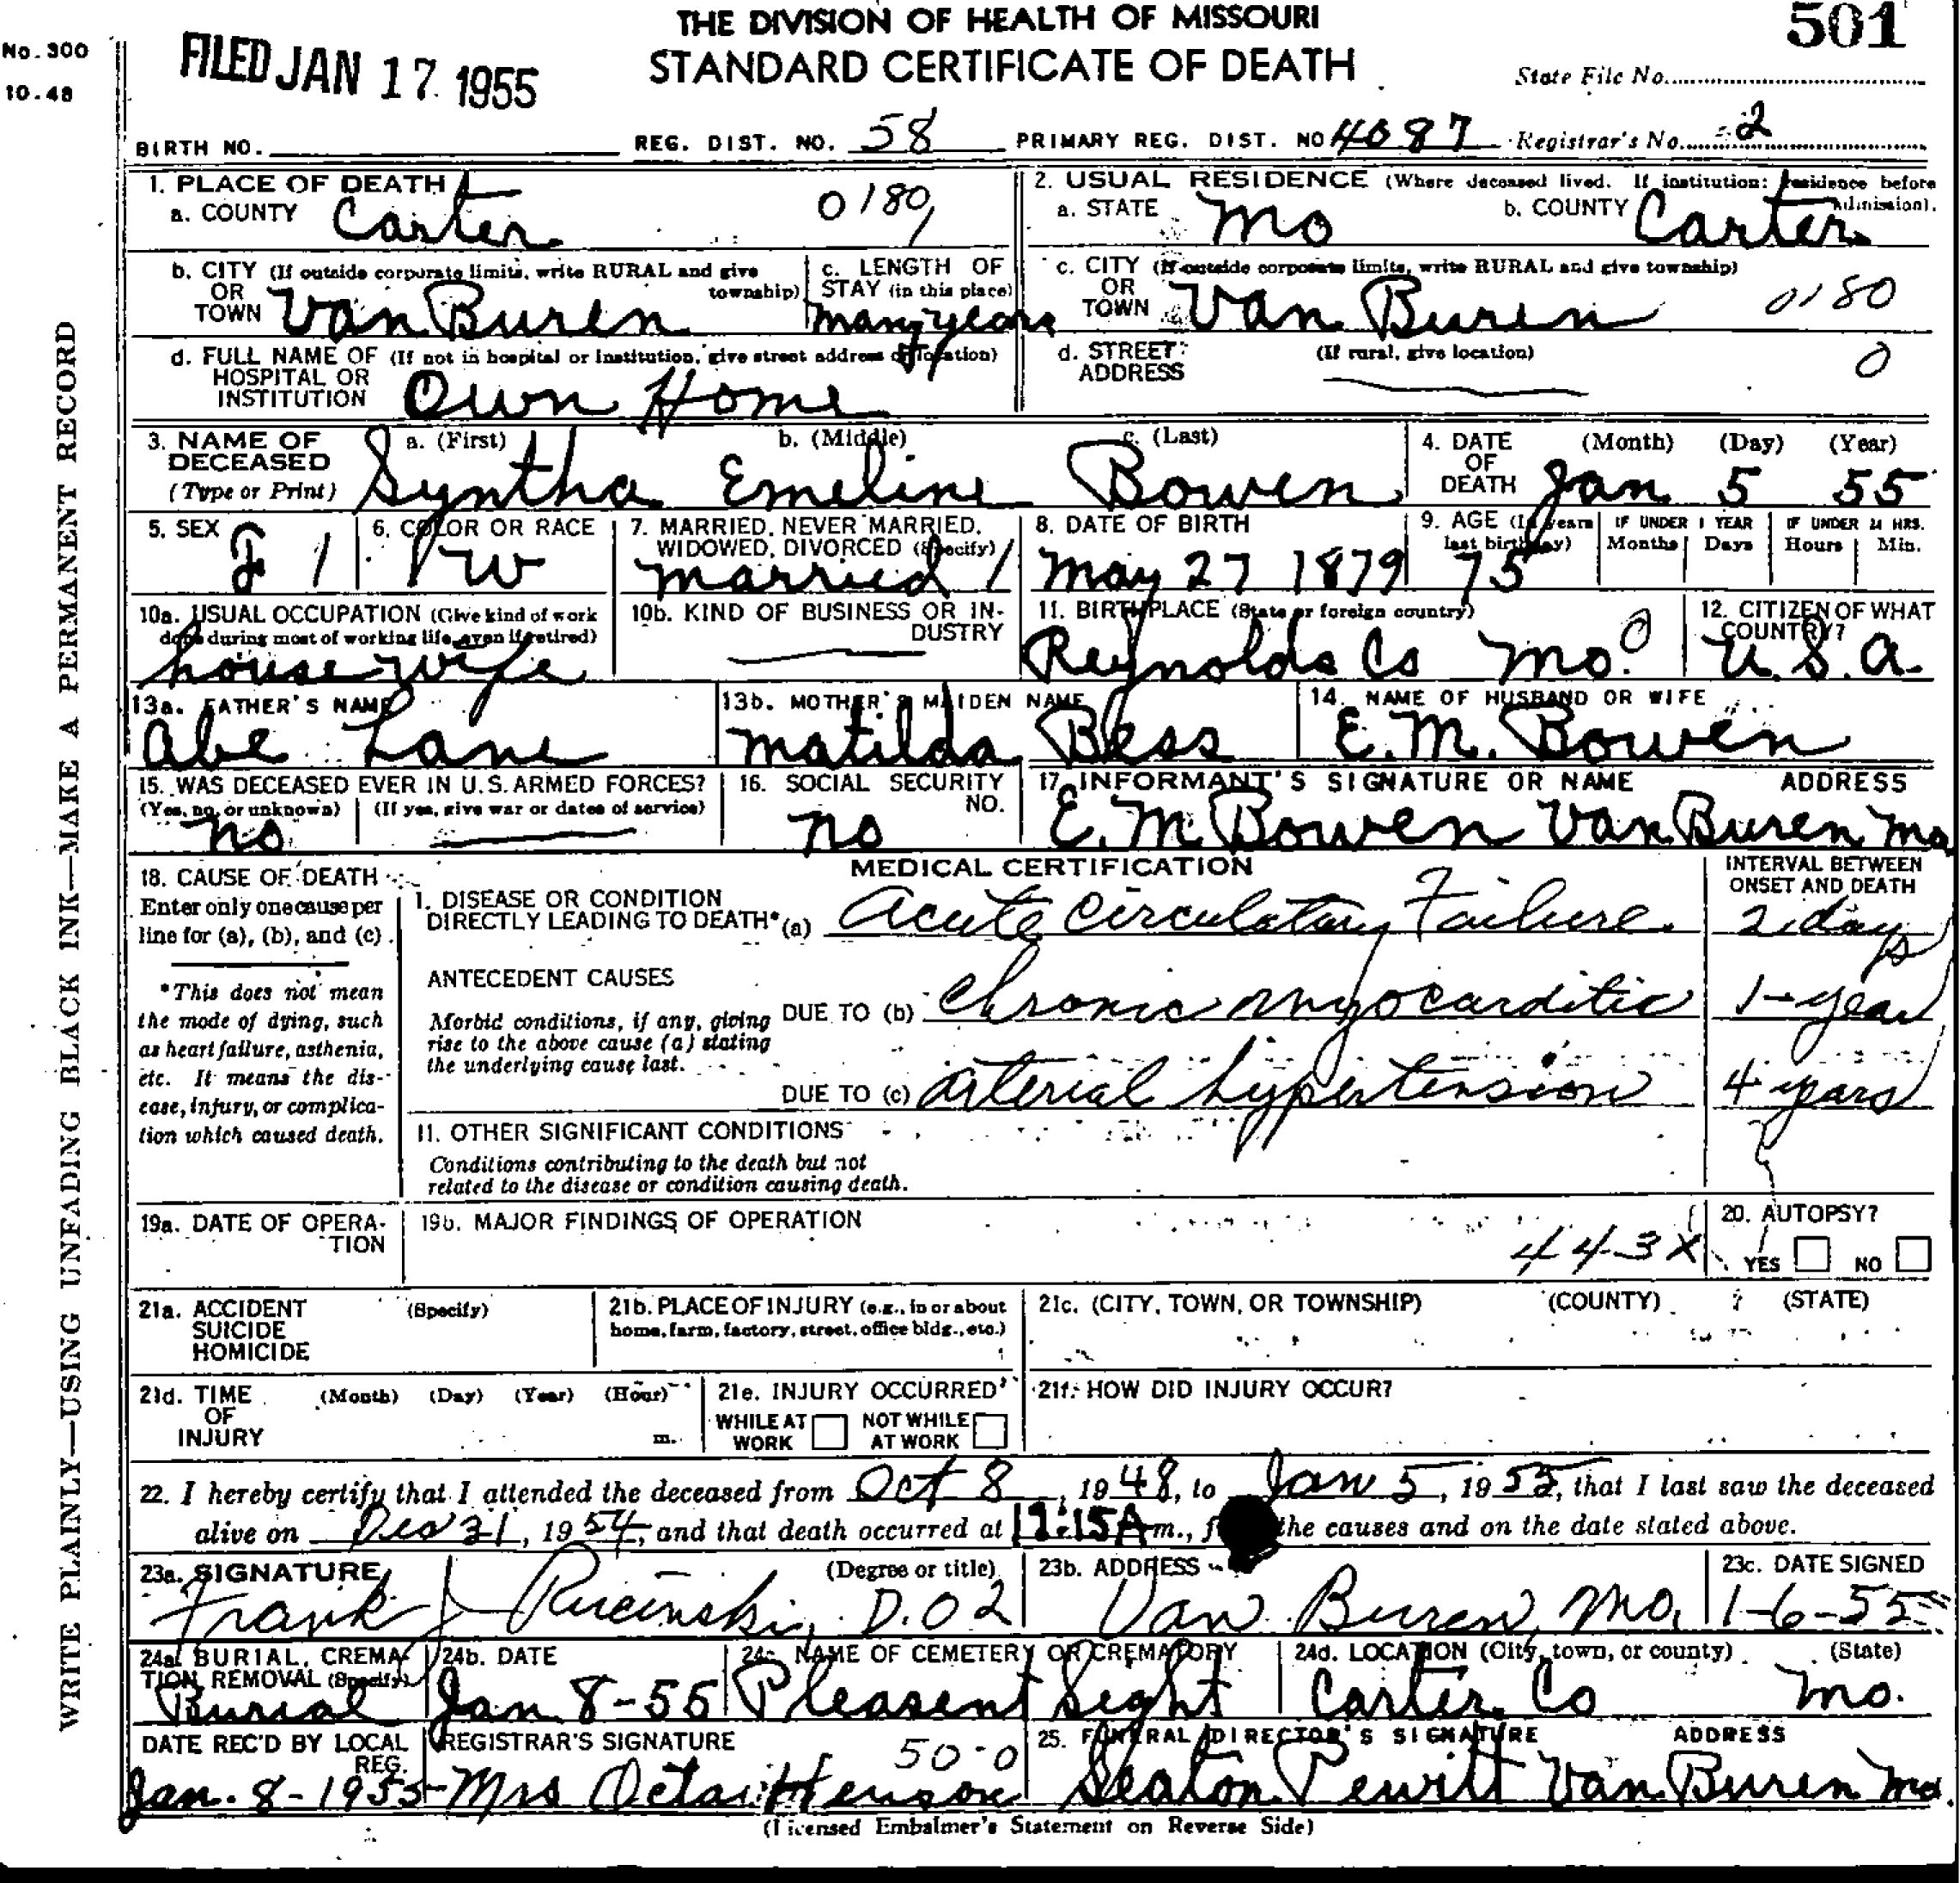 THE DIVISION OF HEALTH OF MISSOURI
STANDARD CERTIFICATE OF DEATH
501
No. 300
10.48
FILED JAN 17 1955
State File No.
BIRTH NO. REG. DIST. NO. 58 PRIMARY REG. DIST. NO 4087 Registrar's No. 2
WRITE PLAINLY—USING UNFADING BLACK INK—MAKE A PERMANENT RECORD
1. PLACE OF DEATH
a. COUNTY Carter 0180
2. USUAL RESIDENCE (Where deceased lived. If institution: residence before admission).
a. STATE Mo b. COUNTY Carter
b. CITY (If outside corporate limits, write RURAL and give township)
OR
TOWN Van Buren
c. LENGTH OF
STAY (in this place)
many years
c. CITY (If outside corporate limits, write RURAL and give township)
OR
TOWN Van Buren 0180
d. FULL NAME OF (If not in hospital or institution, give street address or location)
HOSPITAL OR
INSTITUTION Own Home
d. STREET (If rural, give location)
ADDRESS 0
3. NAME OF DECEASED (Type or Print)
a. (First) b. (Middle) c. (Last)
Syntha Emeline Bowen
4. DATE OF DEATH (Month) (Day) (Year)
Jan 5 55
5. SEX F 1
6. COLOR OR RACE W
7. MARRIED, NEVER MARRIED, WIDOWED, DIVORCED (Specify)
married 1
8. DATE OF BIRTH
May 27 1879
9. AGE (In years last birthday) 75
IF UNDER 1 YEAR
Months Days
IF UNDER 24 HRS.
Hours Min.
10a. USUAL OCCUPATION (Give kind of work done during most of working life, even if retired)
housewife
10b. KIND OF BUSINESS OR INDUSTRY
11. BIRTHPLACE (State or foreign country)
Reynolds Co Mo. 0
12. CITIZEN OF WHAT COUNTRY?
U.S.A.
13a. FATHER'S NAME
Abe Lane
13b. MOTHER'S MAIDEN NAME
Matilda Bess
14. NAME OF HUSBAND OR WIFE
E.M. Bowen
15. WAS DECEASED EVER IN U.S. ARMED FORCES?
(Yes, no, or unknown) (If yes, give war or dates of service)
no
16. SOCIAL SECURITY NO.
no
17. INFORMANT'S SIGNATURE OR NAME ADDRESS
E. M Bowen Van Buren Mo
18. CAUSE OF DEATH
Enter only one cause per
line for (a), (b), and (c).
*This does not mean
the mode of dying, such
as heart failure, asthenia,
etc. It means the dis-
ease, injury, or complica-
tion which caused death.
MEDICAL CERTIFICATION
INTERVAL BETWEEN
ONSET AND DEATH
I. DISEASE OR CONDITION
DIRECTLY LEADING TO DEATH* (a) Acute Circulatory Failure. 2 days
ANTECEDENT CAUSES
Morbid conditions, if any, giving
rise to the above cause (a) stating
the underlying cause last.
DUE TO (b) Chronic myocarditis 1-year
DUE TO (c) arterial hypertension 4 years
II. OTHER SIGNIFICANT CONDITIONS
Conditions contributing to the death but not
related to the disease or condition causing death.
19a. DATE OF OPERA-
TION
19b. MAJOR FINDINGS OF OPERATION
443X
20. AUTOPSY?
YES NO
21a. ACCIDENT (Specify)
SUICIDE
HOMICIDE
21b. PLACE OF INJURY (e.g., in or about
home, farm, factory, street, office bldg., etc.)
21c. (CITY, TOWN, OR TOWNSHIP) (COUNTY) (STATE)
21d. TIME (Month) (Day) (Year) (Hour)
OF
INJURY m.
21e. INJURY OCCURRED
WHILE AT WORK NOT WHILE AT WORK
21f. HOW DID INJURY OCCUR?
22. I hereby certify that I attended the deceased from Oct 8, 1948, to Jan 5, 1955, that I last saw the deceased
alive on Dec 31, 1954, and that death occurred at m., the causes and on the date stated above.
23a. SIGNATURE (Degree or title)
Frank J Rucinski, D.O 2
23b. ADDRESS
Van Buren, Mo.
23c. DATE SIGNED
1-6-55
24a. BURIAL, CREMA-
TION, REMOVAL (Specify)
Burial
24b. DATE
Jan 8-55
24c. NAME OF CEMETERY OR CREMATORY
Pleasent Sight
24d. LOCATION (City, town, or county) (State)
Carter Co Mo.
DATE REC'D BY LOCAL REG.
Jan. 8-1955
REGISTRAR'S SIGNATURE 50-0
Mrs Octa Henson
25. FUNERAL DIRECTOR'S SIGNATURE ADDRESS
Seaton Pewitt Van Buren Mo.
(Licensed Embalmer's Statement on Reverse Side)